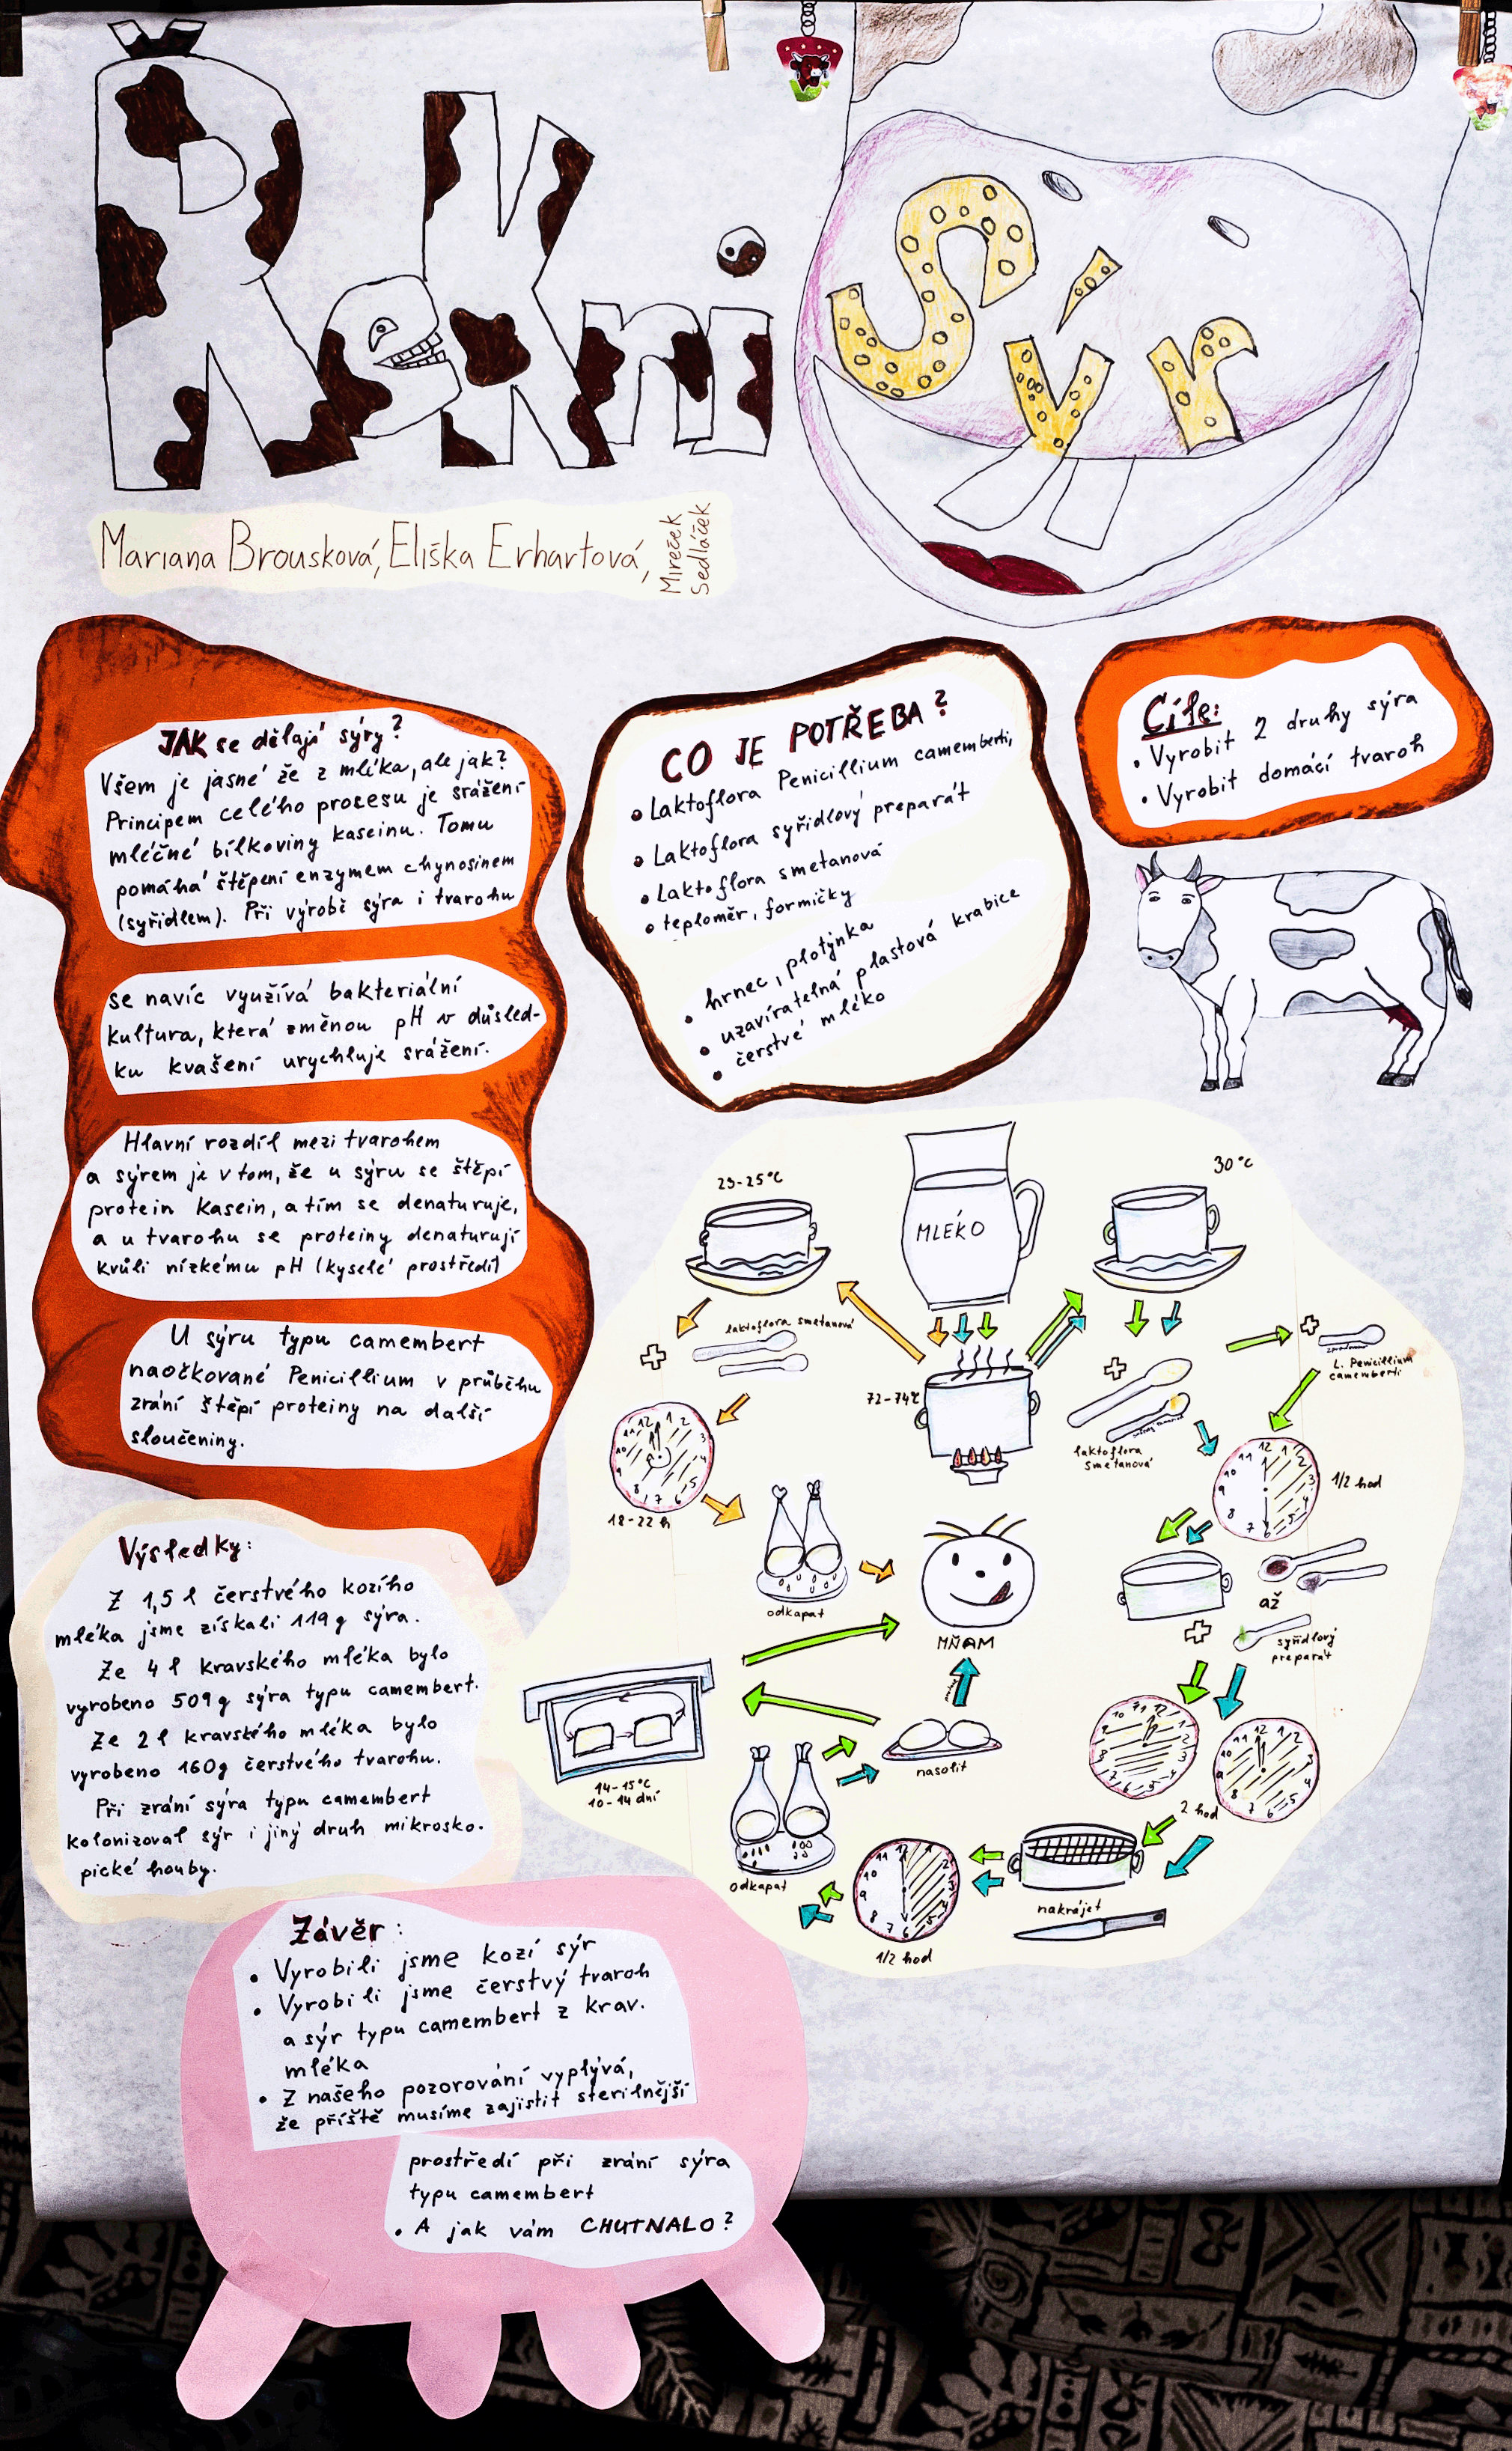 Řekni
Sýr
Mariana Brousková, Eliška Erhartová,
Mireček
Sedláček
JAK se dělají sýry?
Všem je jasné že z mléka, ale jak?
Principem celého procesu je srážení
mléčné bílkoviny kaseinu. Tomu
pomáhá štěpení enzymem chynosinem
(syřidlem). Při výrobě sýra i tvarohu
se navíc využívá bakteriální
kultura, která změnou pH v důsled-
ku kvašení urychluje srážení.
Hlavní rozdíl mezi tvarohem
a sýrem je v tom, že u sýru se štěpí
protein kasein, a tím se denaturuje,
a u tvarohu se proteiny denaturují
kvůli nízkému pH (kyselé prostředí)
U sýru typu camembert
naočkované Penicillium v průběhu
zrání štěpí proteiny na další
sloučeniny.
CO JE POTŘEBA?
• Laktoflora Penicillium camemberti,
• Laktoflora syřidlový preparát
• Laktoflora smetanová
• teploměr, formičky
• hrnec, plotýnka
• uzavíratelná plastová krabice
• čerstvé mléko
Cíle:
• Vyrobit 2 druhy sýra
• Vyrobit domácí tvaroh
23-25°C
MLÉKO
30°C
laktoflora smetanová
72-74°C
laktoflora
smetanová
L. Penicillium
camemberti
18-22 h
1/2 hod
odkapat
MŇAM
až
syřidlový
preparát
14-15°C
10-14 dní
nasolit
2 hod
odkapat
nakrájet
1/2 hod
Výsledky:
Z 1,5 l čerstvého kozího
mléka jsme získali 119 g sýra.
Ze 4 l kravského mléka bylo
vyrobeno 509 g sýra typu camembert.
Ze 2 l kravského mléka bylo
vyrobeno 160g čerstvého tvarohu.
Při zrání sýra typu camembert
kolonizoval sýr i jiný druh mikrosko-
pické houby.
Závěr:
• Vyrobili jsme kozí sýr
• Vyrobili jsme čerstvý tvaroh
a sýr typu camembert z krav.
mléka
• Z našeho pozorování vyplývá,
že příště musíme zajistit sterilnější
prostředí při zrání sýra
typu camembert
• A jak vám CHUTNALO?